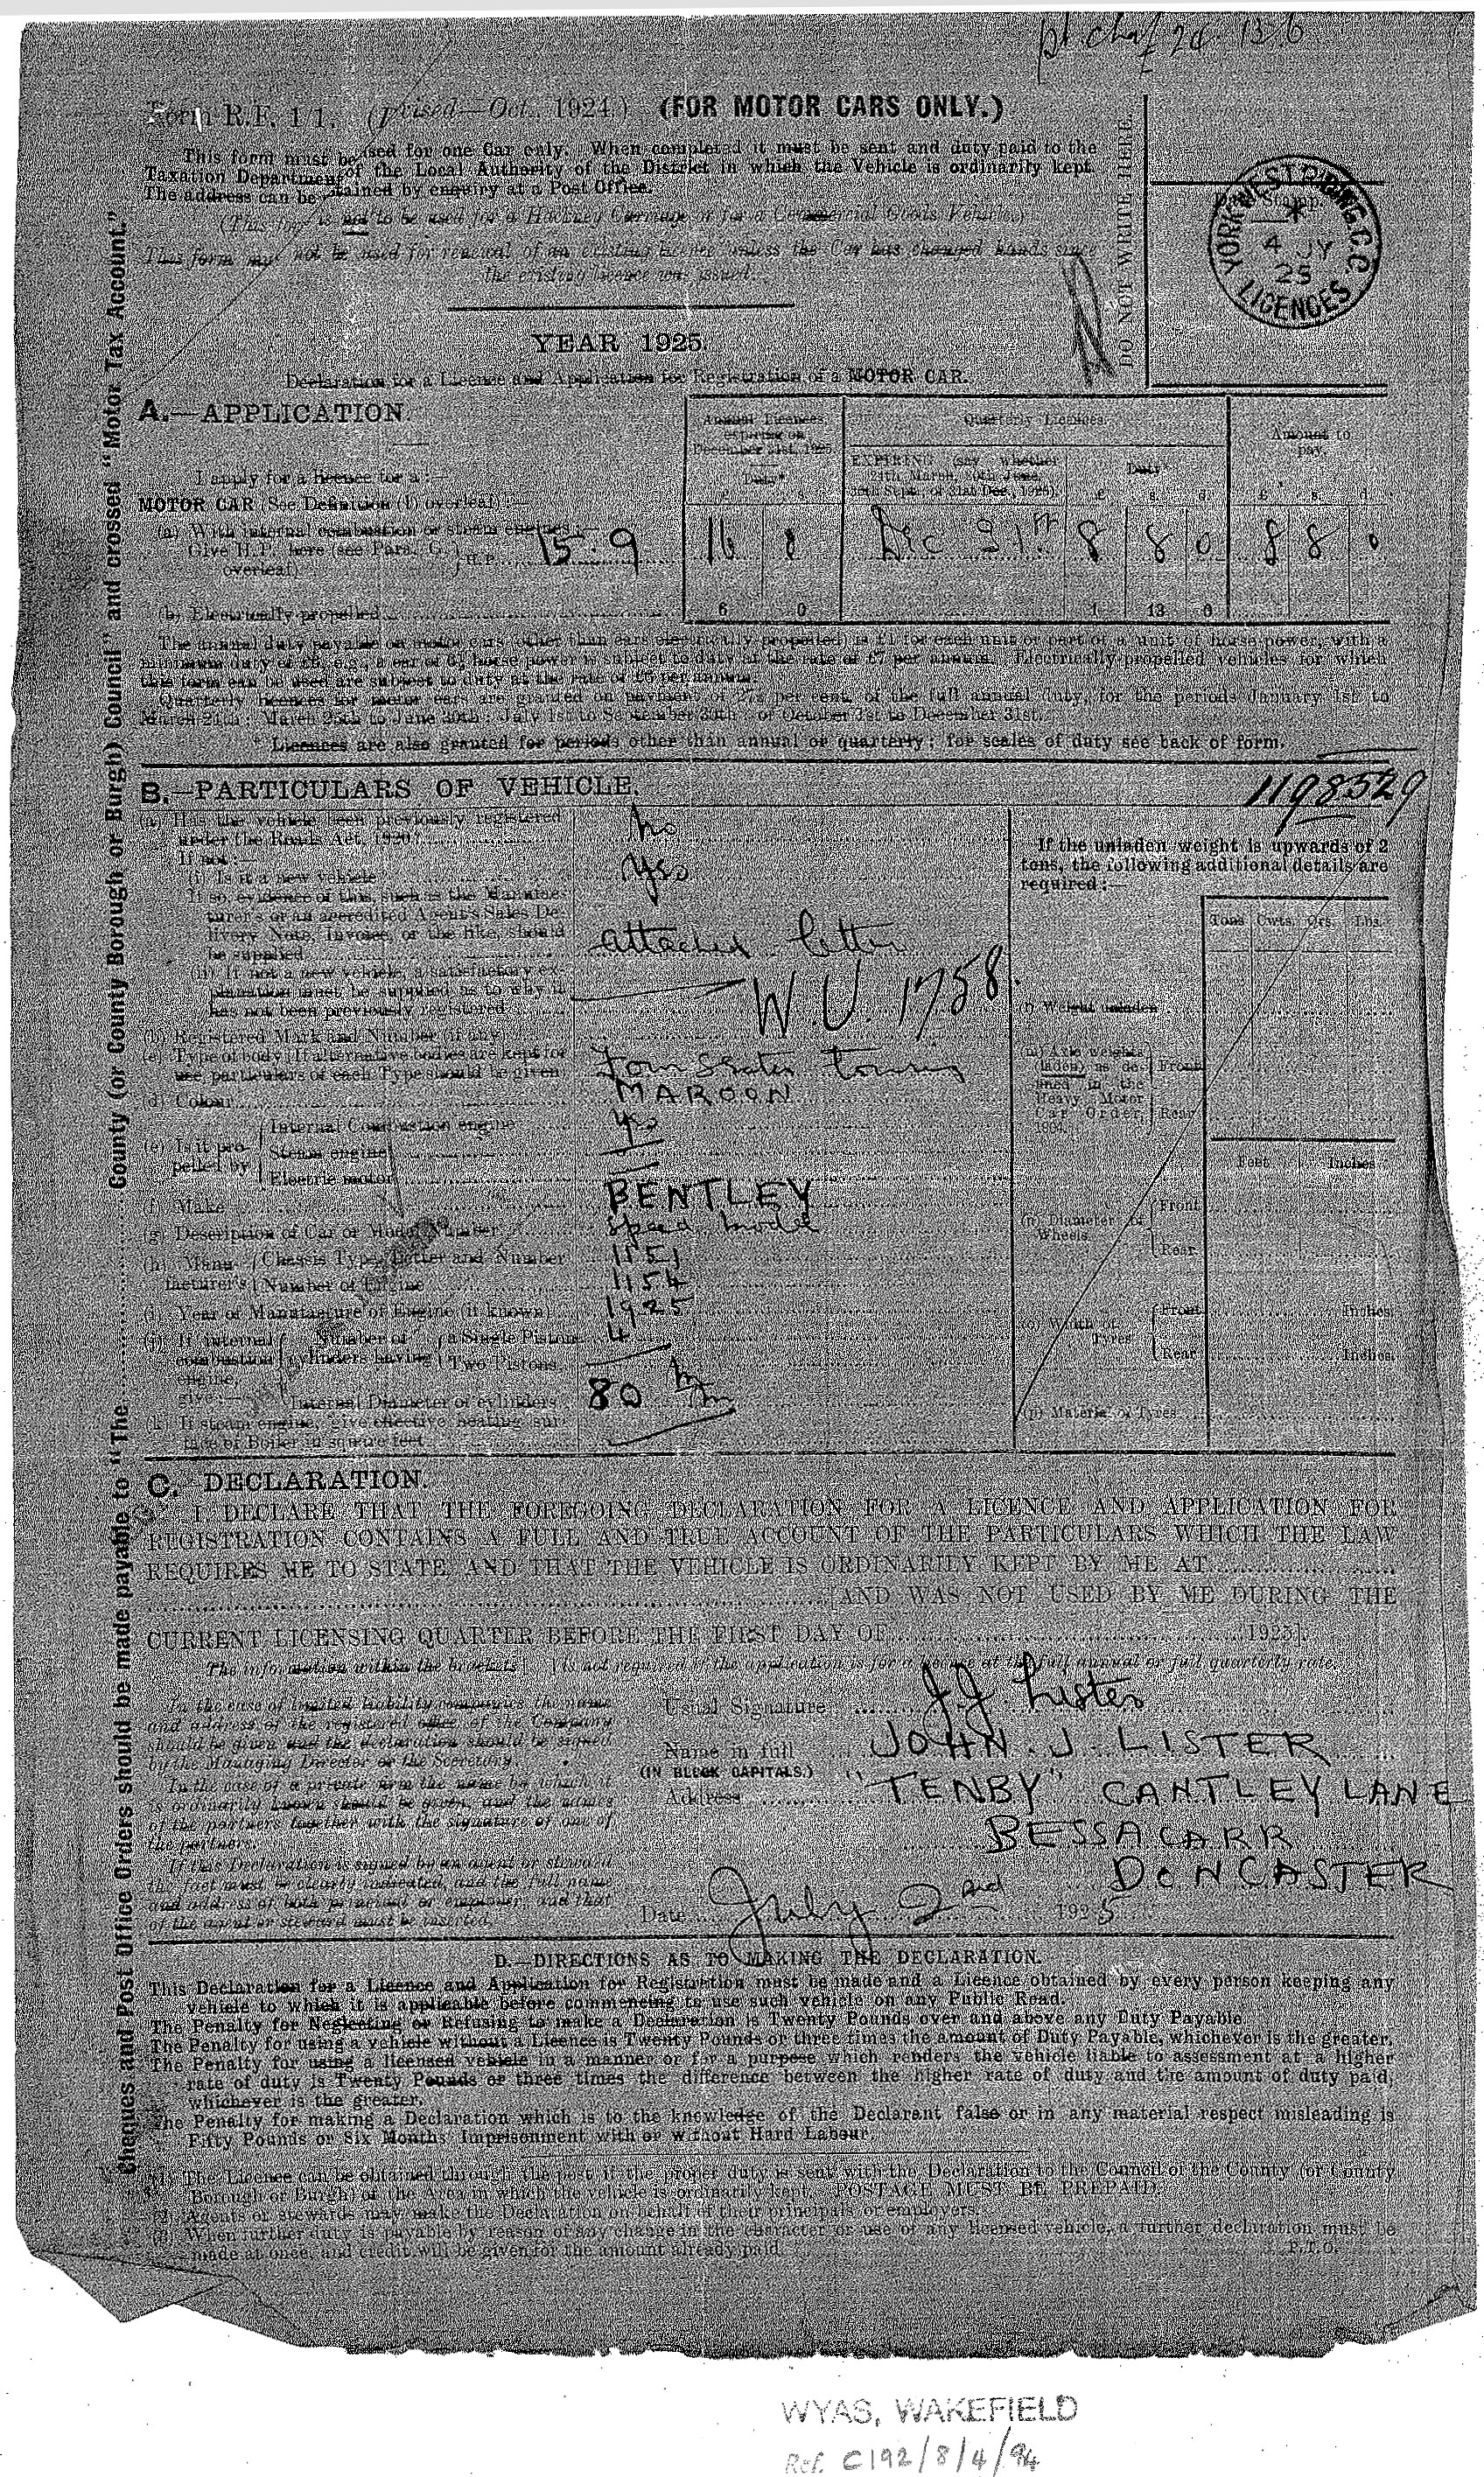 13.6
Form R.F. 11. (Revised—Oct., 1924.) (FOR MOTOR CARS ONLY.)
This form must be used for one Car only. When completed it must be sent and duty paid to the
Taxation Department of the Local Authority of the District in which the Vehicle is ordinarily kept.
The address can be obtained by enquiry at a Post Office.
(This form is not to be used for a Hackney Carriage or for a Commercial Goods Vehicle.)
This form must not be used for renewal of an existing licence unless the Car has changed hands since
the existing licence was issued.
DO NOT WRITE HERE.
YORK WEST RIDING C.C.
4 JY
25
LICENCES
YEAR 1925.
Declaration for a Licence and Application for Registration of a MOTOR CAR.
A.—APPLICATION.
Annual Licences
expiring on
December 31st, 1925
Duty*
Quarterly Licences.
EXPIRING (say whether
24th March, 30th June,
30th Sept. or 31st Dec., 1925).
Duty
£ s. d.
Amount to
pay.
£ s. d.
I apply for a licence for a:—
MOTOR CAR (See Definition (1) overleaf):—
(a) With internal combustion or steam engines:—
Give H.P. here (see Para. G, overleaf) H.P. 15.9 16 8 Dec 31st 8 8 0 8 8 0
(b) Electrically propelled 6 0 1 13 0
The annual duty payable on motor cars (other than cars electrically propelled) is £1 for each unit or part of a unit of horse power, with a
minimum duty of £6, e.g., a car of 6½ horse power is subject to duty at the rate of £7 per annum. Electrically propelled vehicles for which
this form can be used are subject to duty at the rate of £6 per annum.
Quarterly licences for motor cars are granted on payment of 27½ per cent. of the full annual duty, for the periods January 1st to
March 24th; March 25th to June 30th; July 1st to September 30th; or October 1st to December 31st.
* Licences are also granted for periods other than annual or quarterly; for scales of duty see back of form.
B.—PARTICULARS OF VEHICLE.
1198529
(a) Has the vehicle been previously registered
under the Roads Act, 1920? no
If not:—
(i) Is it a new vehicle yes
If so, evidence of this, such as the Manufac-
turer's or an accredited Agent's Sales De-
livery Note, Invoice, or the like, should
be supplied attached letter
(ii) If not a new vehicle, a satisfactory ex-
planation must be supplied as to why it
has not been previously registered
(b) Registered Mark and Number (if any) W.U. 1758.
(c) Type of body (If alternative bodies are kept for
use particulars of each Type should be given) Four Seater touring
(d) Colour MAROON
(e) Is it pro-
pelled by
Internal Combustion engine yes
Steam engine
Electric motor
(f) Make BENTLEY
(g) Description of Car or Model Number Speed Model
(h) Manu-
facturer's
Chassis Type, Letter and Number 1151
Number of Engine 1154
(i) Year of Manufacture of Engine (if known) 1925
(j) If internal
combustion
engine,
give:—
Number of
cylinders having
a Single Piston 4
Two Pistons
Internal Diameter of cylinders 80 m/m
(k) If steam engine, give effective heating sur-
face of Boiler in square feet
If the unladen weight is upwards of 2
tons, the following additional details are
required:—
Tons Cwts. Qrs. Lbs.
(l) Weight unladen
(m) Axle weights
(laden) as de-
fined in the
Heavy Motor
Car Order,
1904.
Front
Rear
Feet Inches
(n) Diameter of
Wheels
Front
Rear
(o) Width of
Tyres
Front Inches.
Rear Inches.
(p) Material of Tyres
C. DECLARATION.
I DECLARE THAT THE FOREGOING DECLARATION FOR A LICENCE AND APPLICATION FOR
REGISTRATION CONTAINS A FULL AND TRUE ACCOUNT OF THE PARTICULARS WHICH THE LAW
REQUIRES ME TO STATE AND THAT THE VEHICLE IS ORDINARILY KEPT BY ME AT
[AND WAS NOT USED BY ME DURING THE
CURRENT LICENSING QUARTER BEFORE THE FIRST DAY OF 1925].
The information within the brackets [ ] is not required if the application is for a licence at the full annual or full quarterly rate.
In the case of limited liability companies the name
and address of the registered office of the Company
should be given and the declaration should be signed
by the Managing Director or the Secretary.
In the case of a private firm the name by which it
is ordinarily known should be given, and the names
of the partners together with the signature of one of
the partners.
If this Declaration is signed by an agent or steward
the fact must be clearly indicated, and the full name
and address of both principal or employer, and that
of the agent or steward must be inserted.
Usual Signature J J Lister
Name in full JOHN. J. LISTER
(IN BLOCK CAPITALS.)
Address "TENBY" CANTLEY LANE
BESSACARR
DONCASTER
Date July 2nd 1925
D.—DIRECTIONS AS TO MAKING THE DECLARATION.
This Declaration for a Licence and Application for Registration must be made and a Licence obtained by every person keeping any
vehicle to which it is applicable before commencing to use such vehicle on any Public Road.
The Penalty for Neglecting or Refusing to make a Declaration is Twenty Pounds over and above any Duty Payable.
The Penalty for using a vehicle without a Licence is Twenty Pounds or three times the amount of Duty Payable, whichever is the greater.
The Penalty for using a licensed vehicle in a manner or for a purpose which renders the vehicle liable to assessment at a higher
rate of duty is Twenty Pounds or three times the difference between the higher rate of duty and the amount of duty paid,
whichever is the greater.
The Penalty for making a Declaration which is to the knowledge of the Declarant false or in any material respect misleading is
Fifty Pounds or Six Months' Imprisonment with or without Hard Labour.
(1) The Licence can be obtained through the post if the proper duty is sent with the Declaration to the Council of the County (or County
Borough or Burgh) of the Area in which the vehicle is ordinarily kept. POSTAGE MUST BE PREPAID.
(2) Agents or stewards may make the Declaration on behalf of their principals or employers.
(3) When further duty is payable by reason of any change in the character or use of any licensed vehicle, a further declaration must be
made at once, and credit will be given for the amount already paid.
P.T.O.
Cheques and Post Office Orders should be made payable to "The County (or County Borough or Burgh) Council" and crossed "Motor Tax Account."
WYAS, WAKEFIELD
Ref. C192/8/4/94